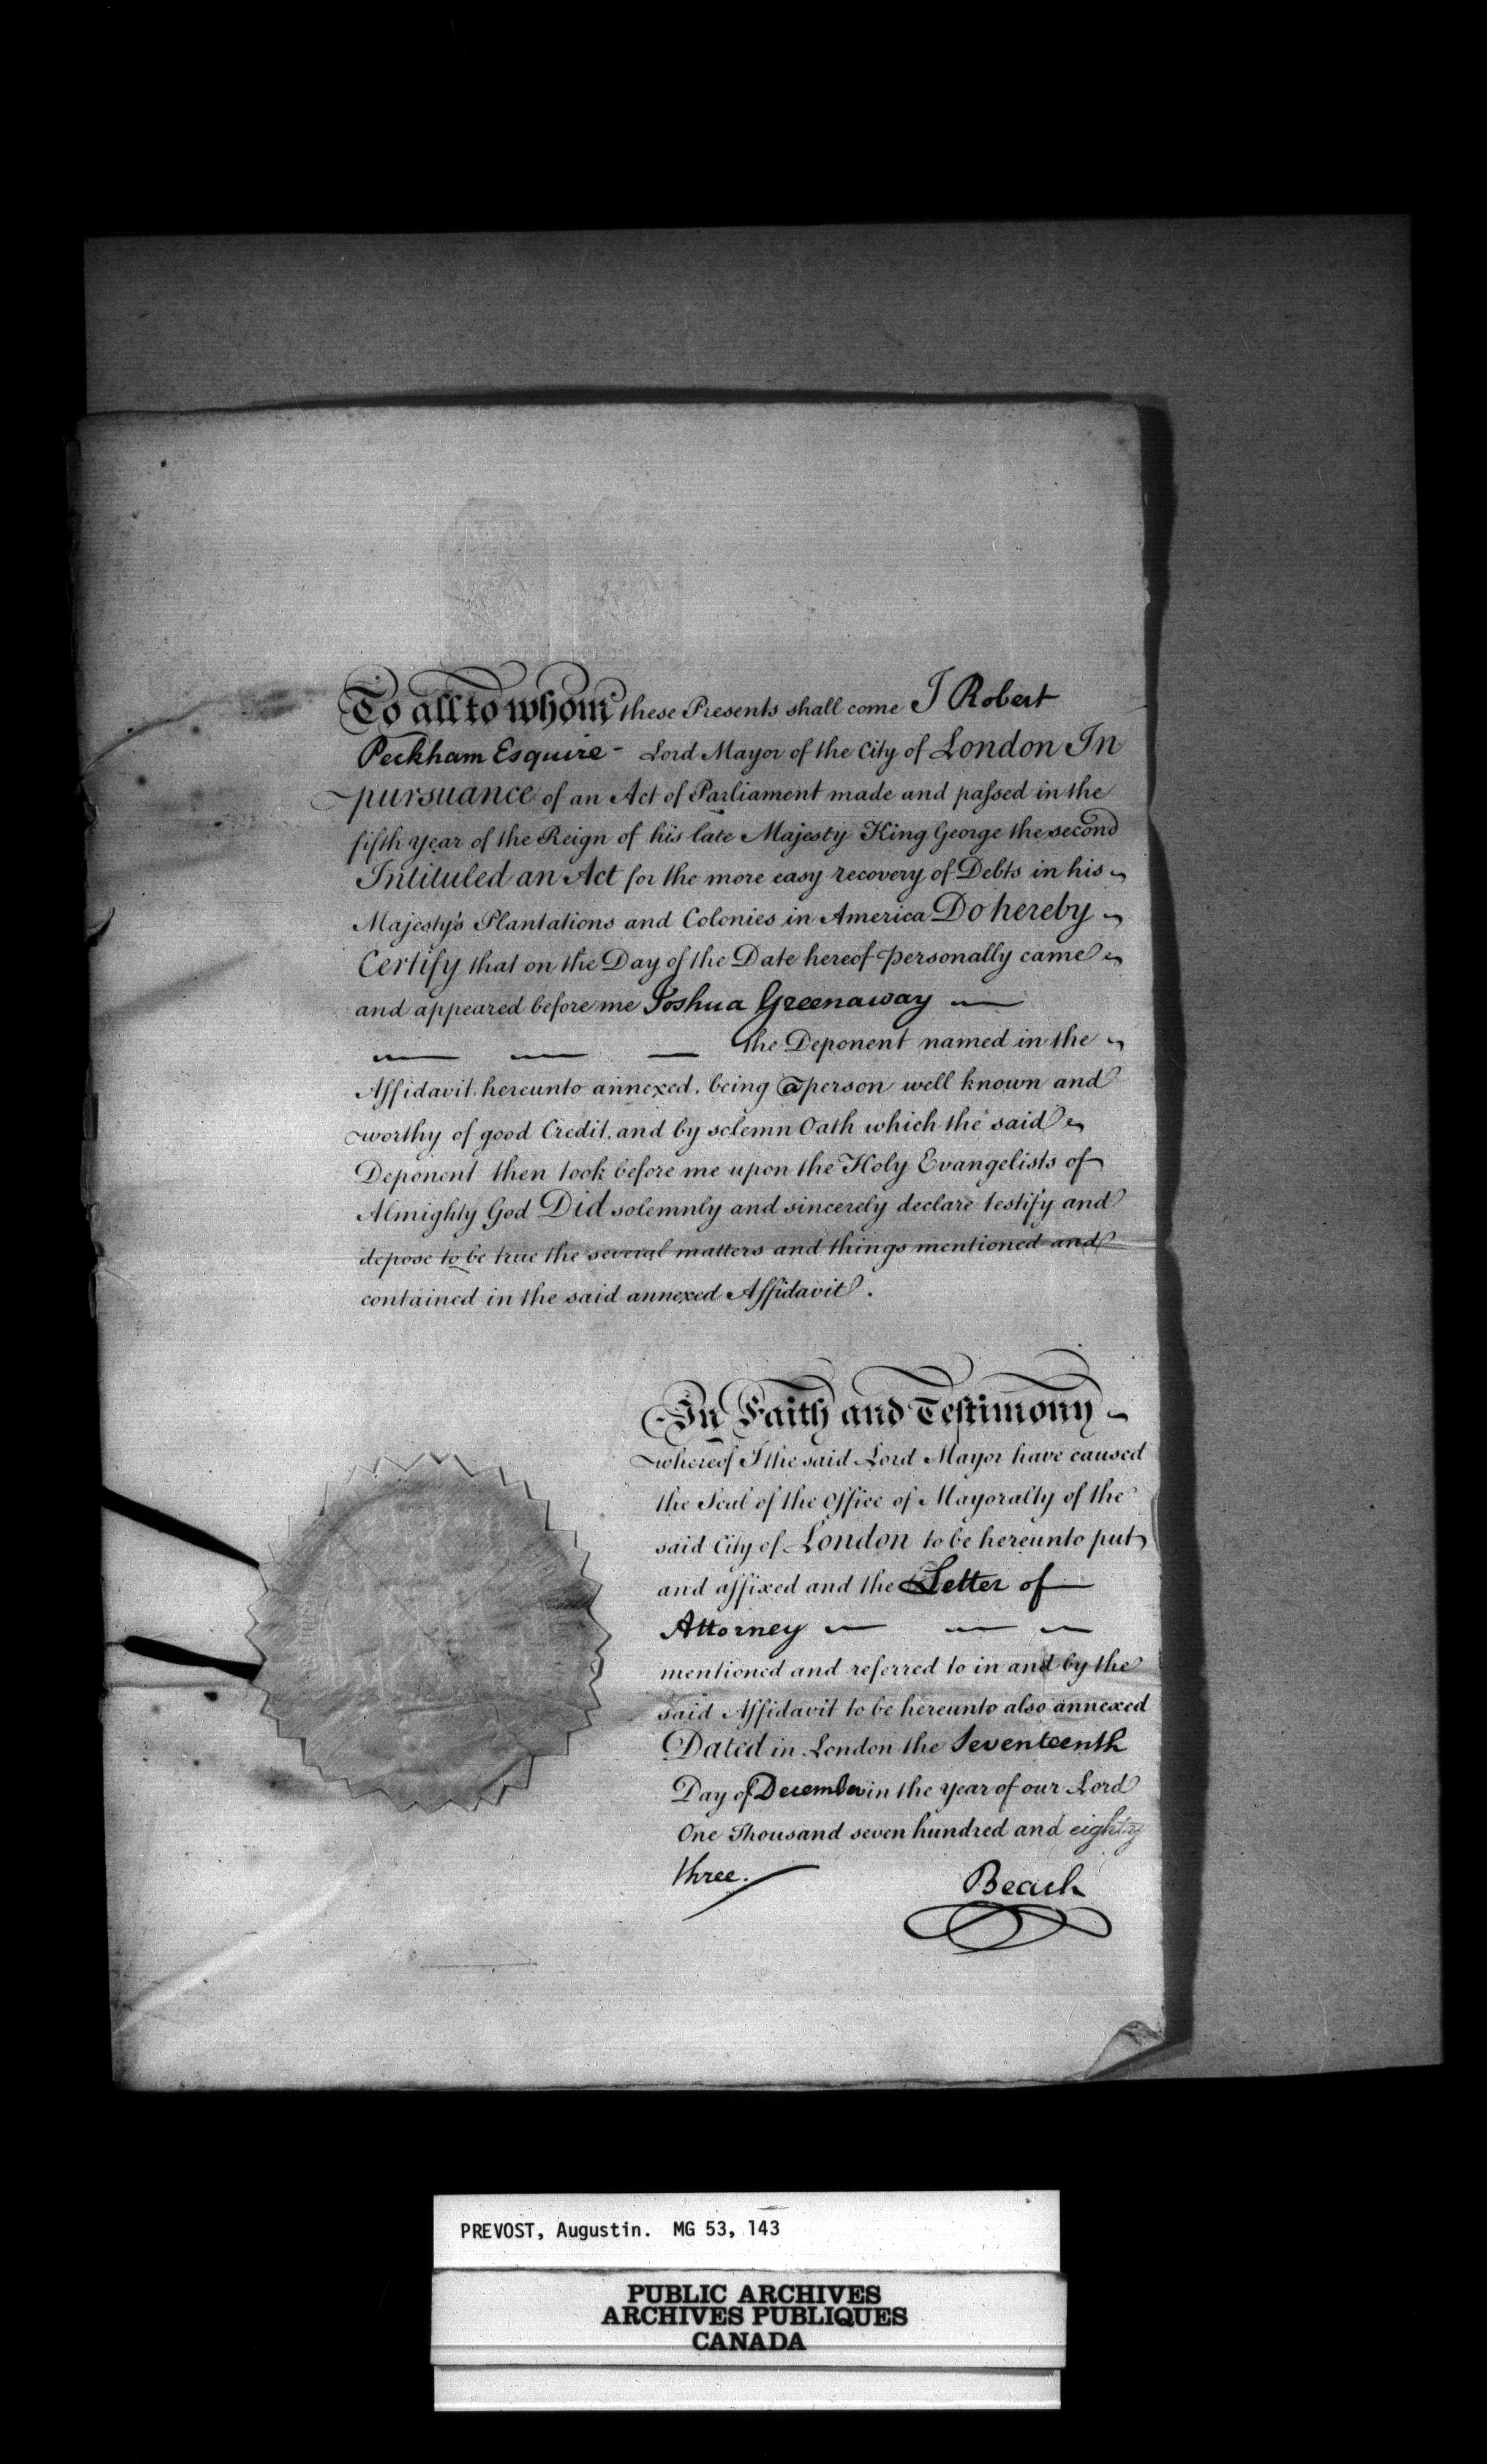 To all to whom these Presents shall come I Robert
Peckham Esquire - Lord Mayor of the City of London In
pursuance of an Act of Parliament made and passed in the
fifth year of the Reign of his late Majesty King George the second
Intituled an Act for the more easy recovery of Debts in his
Majesty's Plantations and Colonies in America Do hereby
Certify that on the Day of the Date hereof personally came
and appeared before me Joshua Greenaway —
— — — the Deponent named in the
Affidavit hereunto annexed. being a person well known and
worthy of good Credit. and by solemn Oath which the said
Deponent then took before me upon the Holy Evangelists of
Almighty God Did solemnly and sincerely declare testify and
depose to be true the several matters and things mentioned and
contained in the said annexed Affidavit.
In Faith and Testimony
whereof I the said Lord Mayor have caused
the Seal of the Office of Mayoralty of the
said City of London to be hereunto put
and affixed and the Letter of
Attorney — — —
mentioned and referred to in and by the
said Affidavit to be hereunto also annexed
Dated in London the Seventeenth
Day of December in the year of our Lord
One Thousand seven hundred and eighty
three.
Beach
PREVOST, Augustin. MG 53, 143
PUBLIC ARCHIVES
ARCHIVES PUBLIQUES
CANADA